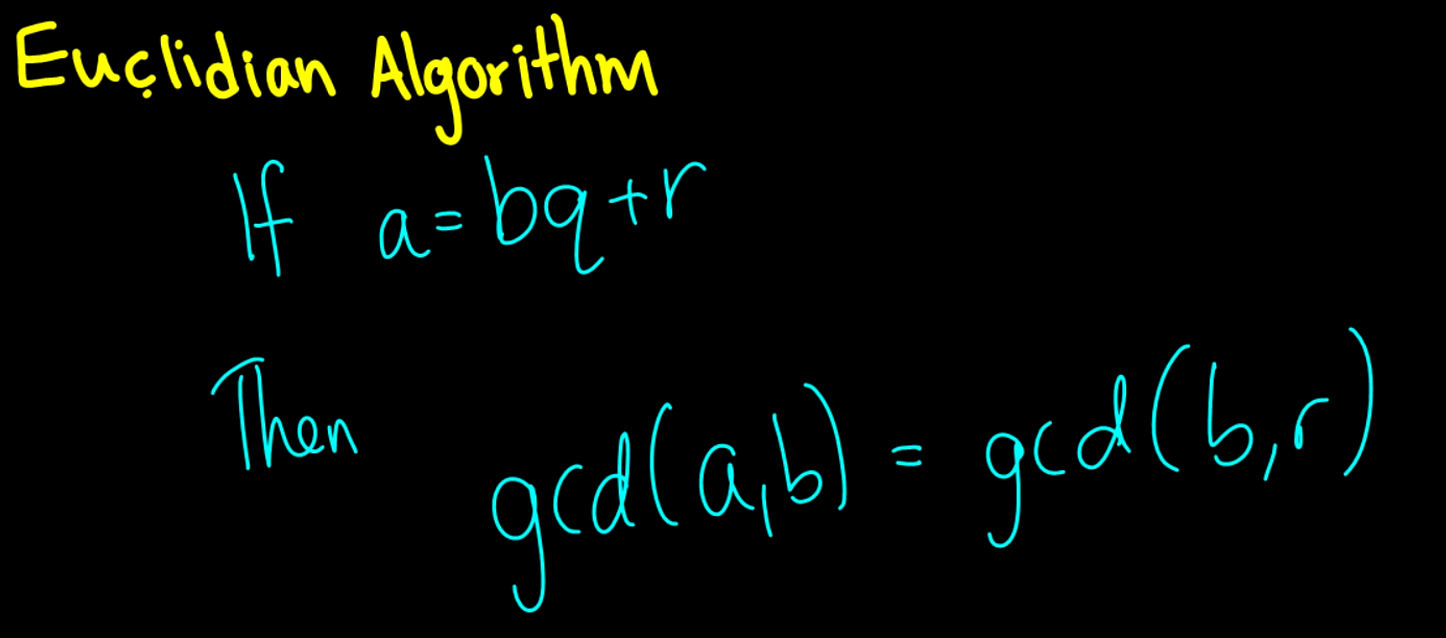 Euclidian Algorithm
If a=bq+r
Then gcd(a,b) = gcd(b,r)